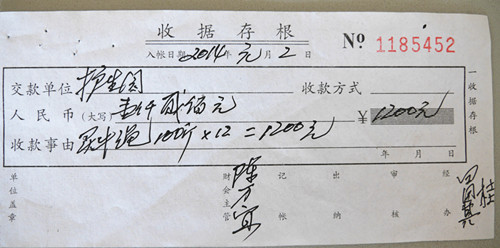 收据存根
入帐日期 2014年 元月 2日 № 1185452
交款单位 护生园 收款方式
人民币(大写) 壹仟贰佰元 ￥1200元
收款事由 100斤×12=1200元
年 月 日
一 收据存根
单位盖章 财会主管 陈万宜 记帐 出纳 审核 经办